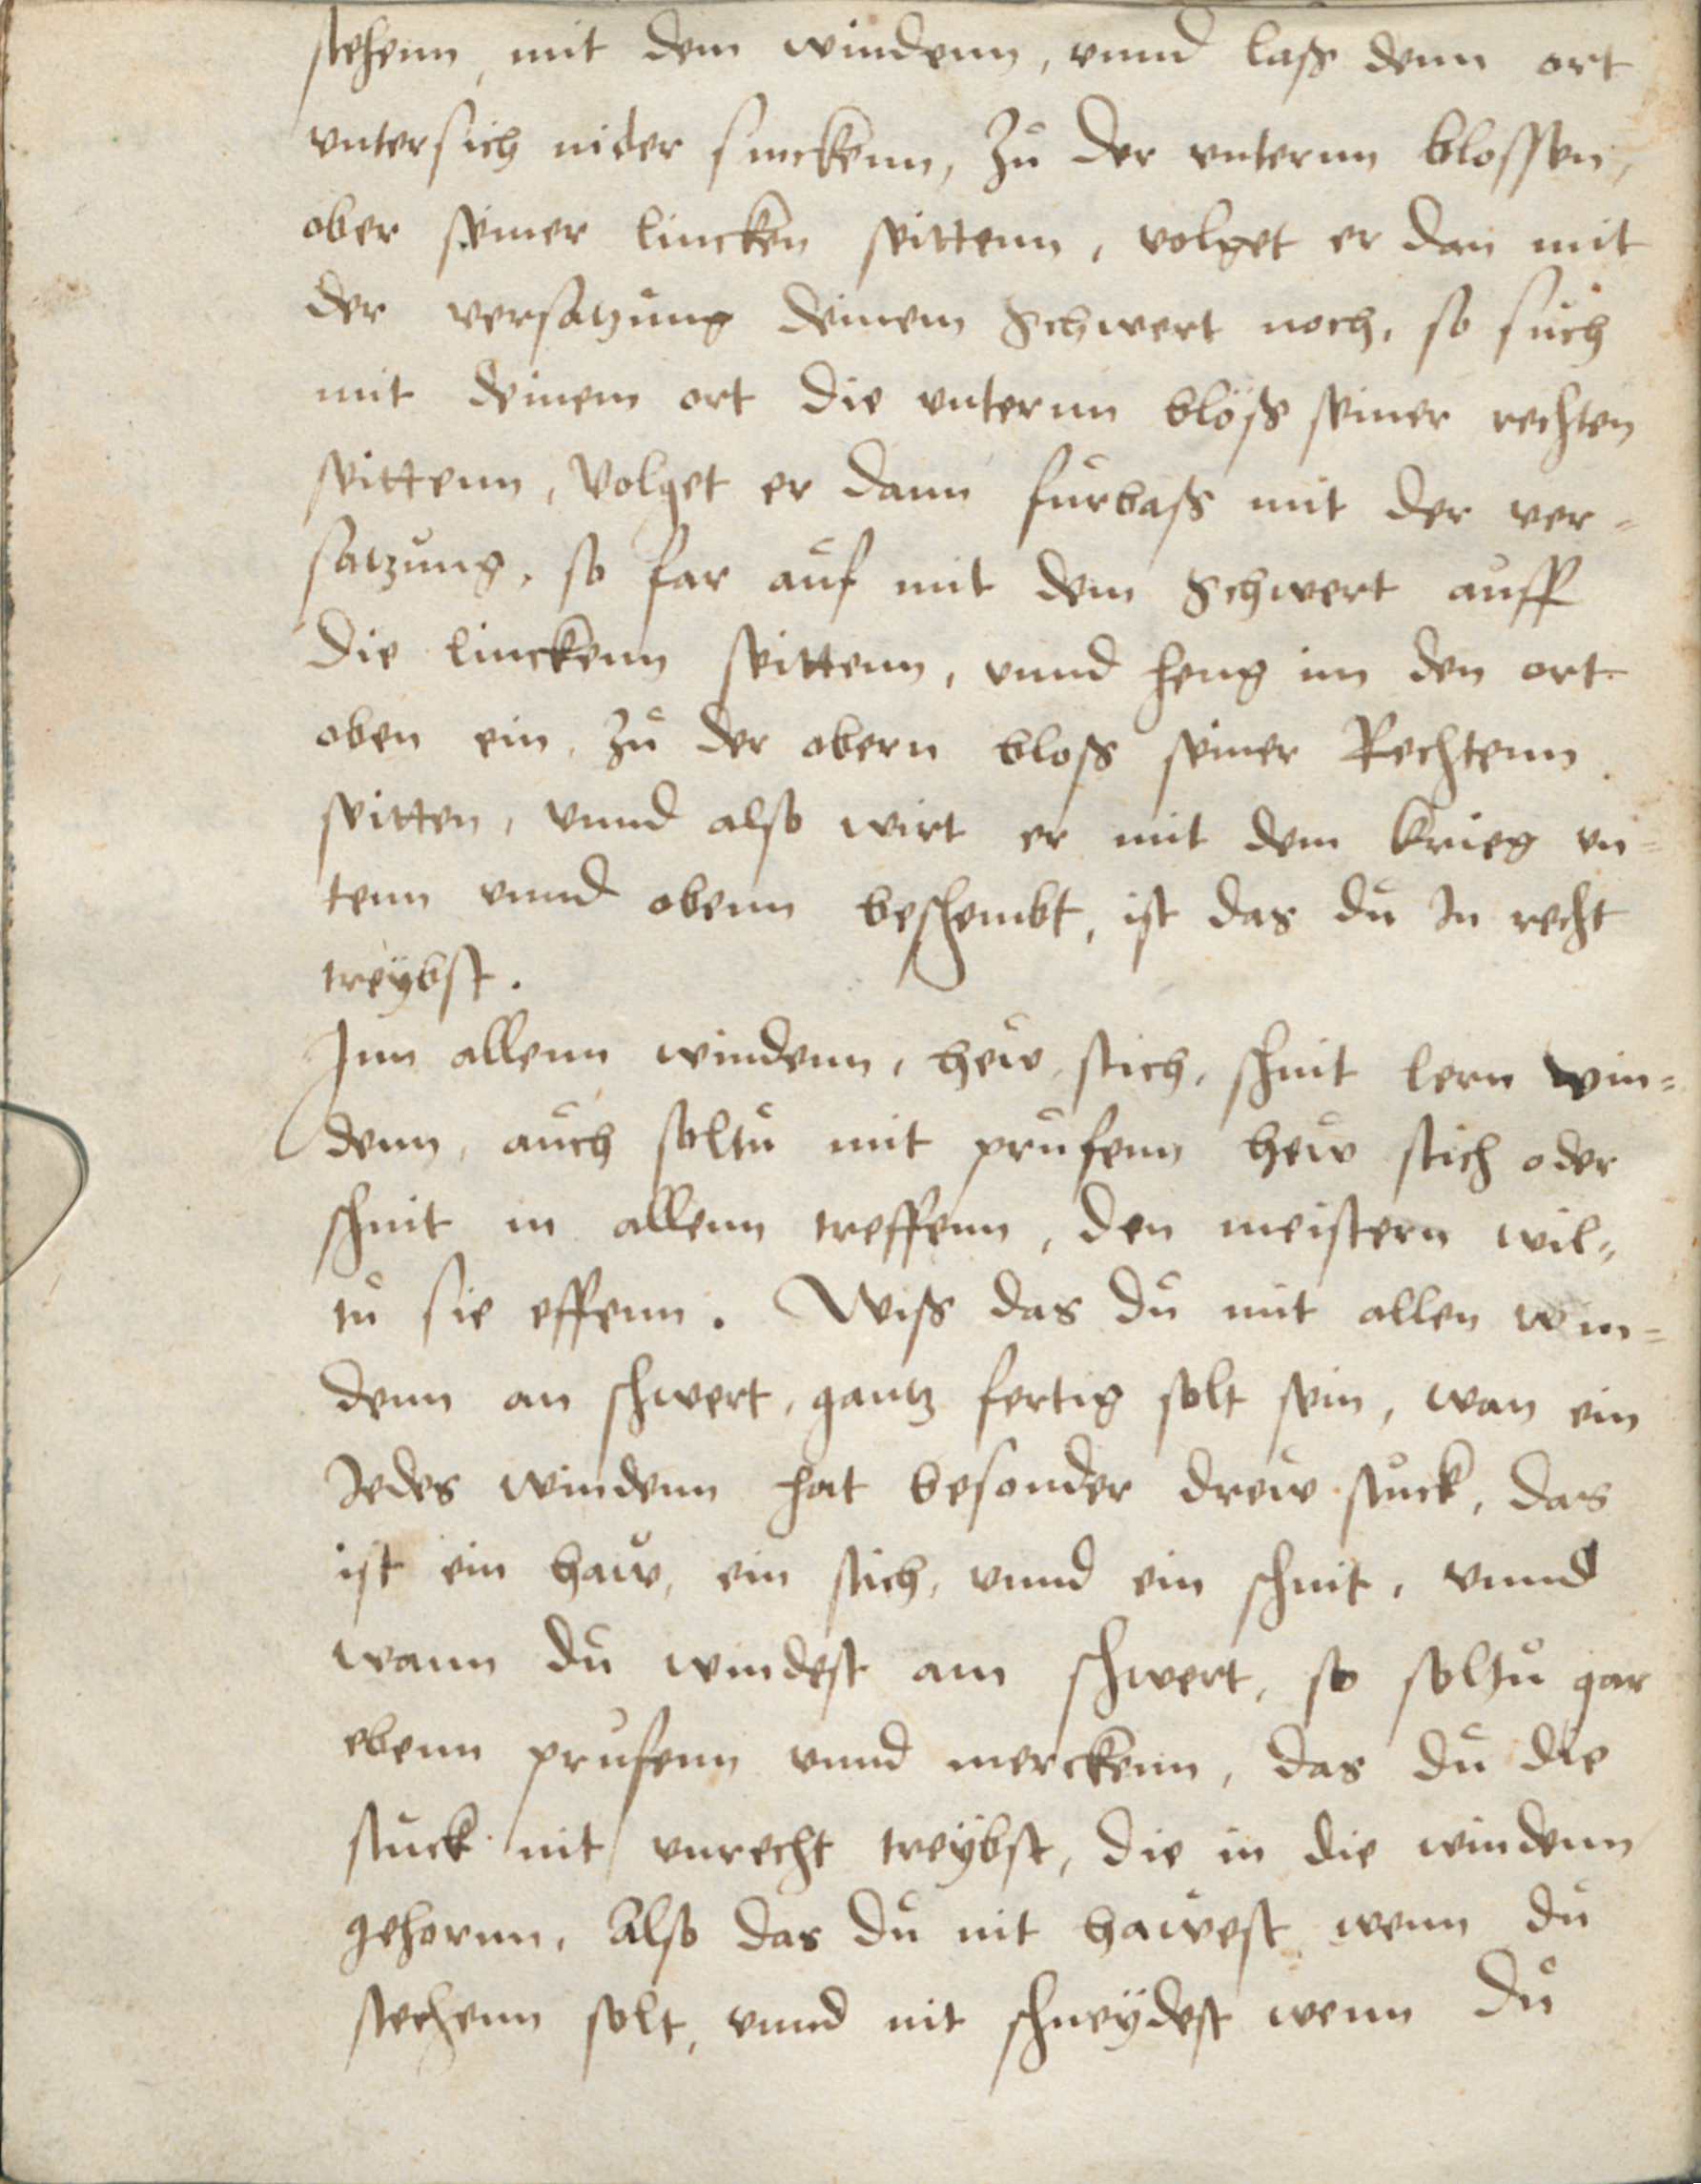 stehenn, mit dem windenn, vnnd lasß denn ort
vntersich nider sinckenn, Zů der vnternn blossen,
ober seiner lincken seittenn, volget er dan mit
der versatzůng deinem Schwert noch, so sůch
mit deinem ort die vnternn blöß seiner rechten
seittenn, Volget er dann fůrbaß mit der ver-
satzůng, so far aůf mit dem Schwert aůff
die linckenn seittenn, vnnd heng im den ort
oben ein, Zů der obern bloß seiner Rechtenn
seitten, vnnd also wirt er mit dem krieg vn-
tenn vnnd obenn beschembt, ist das dů In recht
treÿbst.
Inn allenn windenn, hew, stich, schnit lern win=
denn, aůch soltů mit průfenn hew stich oder
schnit in allenn treffenn, den meistern wil=
tů sie effenn. Wiß das dů mit allen win=
denn an schwert, gantz fertig solt sein, wan ein
Iedes windenn hat besonder drew stůck, das
ist ein haw, ein stich, vnnd ein schnit, vnnd
wann dů windest am schwert, so soltů gar
ebenn průfenn vnnd merckenn, das dů die
stůck nit vnrecht treÿbst, die in die windenn
gehornn, Also das dů nit hawest wenn dů
stechenn solt, vnnd nit schneÿdest wenn dů